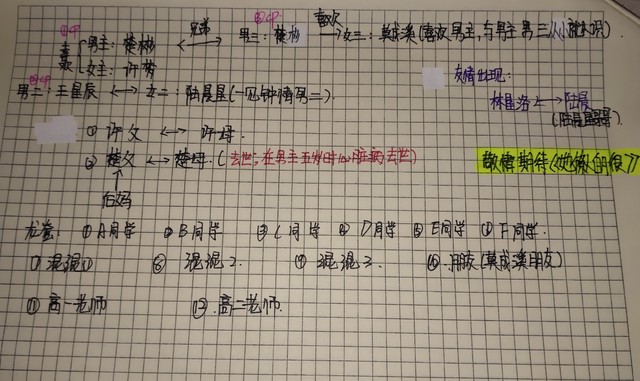 男主：楚彬 ←兄弟→ 男三：楚杉 喜欢→ 女三：莫成溪(喜欢男主,与男主男三从小就认识).
喜欢 女主：许梦
男二：王星辰 ←→ 女二：陆晨星(一见钟情男二).
友情出现：
林星洛←→陆晨
(陆晨星哥哥).
① 许父 ←→ 许母.
② 楚父 ←→ 楚母.(去世;在男主五岁时心脏病去世)
↑
后妈
敬情期待《她傲的很》
龙套： ①A同学 ②B同学 ③C同学 ④D同学 ⑤E同学 ⑥F同学.
⑦混混1 ⑧混混2. ⑨混混3. ⑩.朋友(莫成溪朋友)
⑪高一老师 ⑫.高二老师.